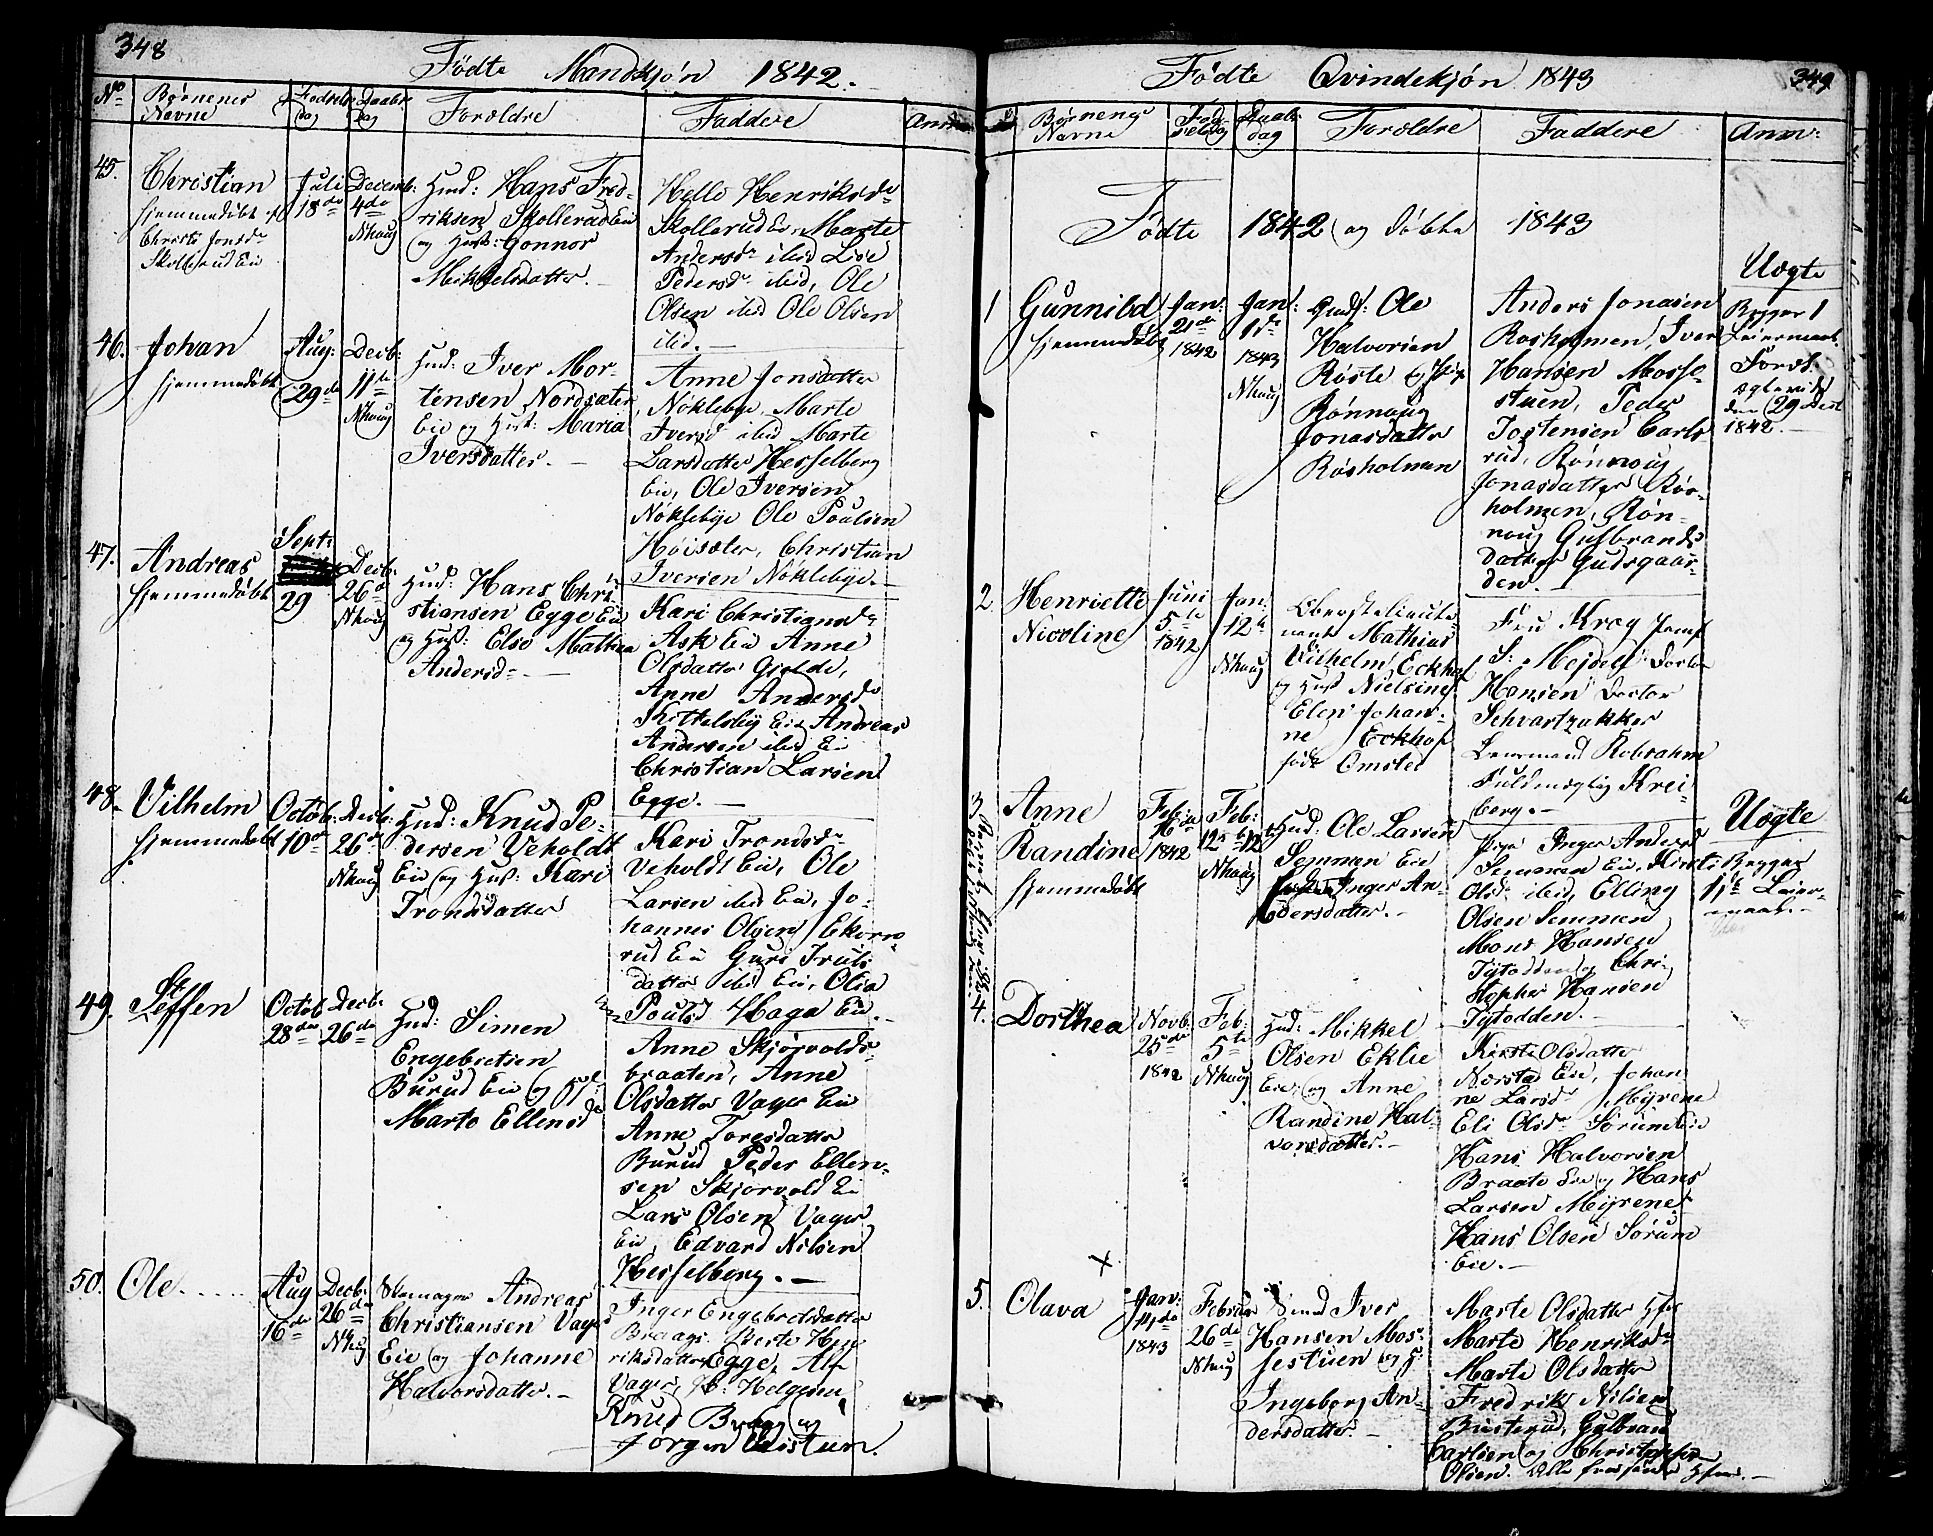 348
Födte Mandkjön 1842.
No Börnenes Navne Födsels Dag Daabs Dag Forældre Faddere Anm
45. Christian
hjemmedöbt af
Christi Jonsdr
Skollerud Eie
Juli
18de
Decemb:
4de
Nhaug
Husd: Hans Fred-
riksen Skollerud Eie
og Hust: Gonnor
Mikkelsdatter.
Helle Henriksdr
Skollerud Eie, Marte
Andersdr ibid Lise
Pedersdr ibid, Ole
Olsen ibid Ole Olsen
ibid.
46. Johan
hjemmedöbt
Aug:
29de
Decb:
11te
Nhaug
Husd: Iver Mor-
tensen Nordsæter
Eie og Hust: Maria
Iversdatter.
Anne Jonsdatter
Nöklebye, Marte
Iversd ibid Marte
Larsdatter Hesselberg
Eie, Ole Iversen
Nöklebye Ole Poulsen
Höisæter, Christian
Iversen Nöklebye.
47. Andreas
hjemmedöbt
Sept:
29
Decb:
26de
Nhaug
Husd: Hans Chri-
stiansen Egge Eie
og Hust: Else Mathea
Andersdr
Kari Christiansdr
Ask Eie Anne
Olsdatter Gjelde,
Anne Andersdr
Kittelsby Eie Andreas
Andersen ibid Ei
Christian Larsen
Egge.
48. Vilhelm
hjemmedöbt
Octob:
10de
Decb:
26de
Nhaug
Husd: Knud Pe-
dersen Veholdt
Eie og Hust: Kari
Trondsdatter
Kari Trondsdr
Veholdt Eie, Ole
Larsen ibid Eie, Jo-
hannes Olsen Ekorn-
rud Eie Guri Truls-
datter ibid Eie, Olia
Poulsd Haga Eie.
49. Steffen
Octob
28de
Decb:
26de
Husd: Simen
Engebretsen
Burud Eie og H
Marte Ellensdr
Anne Skjörvolds-
braaten, Anne
Olsdatter Vager Eie
Anne Toresdatter
Burud Peder Ellen-
sen Skjörvold Eie
Lars Olsen Vager
Eie, Edvard Nilsen
Hesselberg.
50. Ole
Aug
16de
Decb:
26de
Nhaug
Andreas
Christiansen Vager
Eie og Johanne
Halvorsdatter.
Inger Engebretsdatter
Braager Berte Hen-
riksdatter Egge, Alf
Vager, Helgesen
Knud Braag og
Jörgen
349
Födte Qvindekjön 1843
Börnenes Navne Födselsdag Daabsdag Forældre Faddere Anm:
Födte 1842 og döbte 1843
1 Gunnild
hjemmedöbt
Jan:
21de
1842
Jan:
1te
1843
Nhaug
Husf: Ole
Halvorsen
Röste og Pige
Rönnaug
Jonasdatter
Rösholmen
Anders Jonasen
Rosholmen, Iver
Hansen Mosse-
stuen, Peder
Tostensen Carls-
rud, Rönnoug
Jonasdatter Rös-
holmen, Rön-
noug Gulbrands
datter Gudsgaar-
den.
Uægte
Begges 1
Leiermaal
Foræl:
ægteviede
den 29 Decb
1842.
2. Henriette
Nicoline
Juni
5te
1842
Jan:
12te
Nhaug
Oberstelieute-
nant Mathias
Vilhelm Eckhof
og Hust Nielsine
Elen Johan-
ne Eckhof
föde Omsted
Fru Krog Jomf
S: Mejdell Doctor
Hansen Doctor
Schvartzakker
Lensmand Robsahm
Fuldmægtig Krei-
berg.
3 Anne
Randine
hjemmedöbt
Feb:
16de
1842
Feb:
12te
Nhaug
Husd: Ole Larsen
Semmen Eie
Inger An-
dersdatter.
Pige Inger Andersd
Semmen Eie, Kirsti
Olsdr ibid, Elling
Olsen Semmen
Mons Hansen
Tytodden og Chri-
stopher Hansen
Tytodden.
Uægte
Begges
11te Leier-
maal.
4. Dorthea
Novb:
25de
1842
Feb:
5te
Nhaug
Husd: Mikkel
Olsen Eklie
Eie, og Anne
Randine Hal-
vorsdatter.
Kirsti Olsdatter
Norstad Eie, Johan-
ne Larsdr Myrene
Eli Olsdr Sörum Eie
Hans Halvorsen
Braate Eie og Hans
Larsen Myrene
Hans Olsen Sörum
Eie.
5. Olava
Jan:
11te
1843
Februar
26de
Nhaug
Iver
Hansen Mos-
sestuen og H:
Ingeborg An-
dersdatter.
Marte Olsdatter
Marte Henriksdr
Marte Olsdatter
Fredrik Nilsen
Busterud, Gulbrand
Carlsen og Christopher
Olsen. Alle